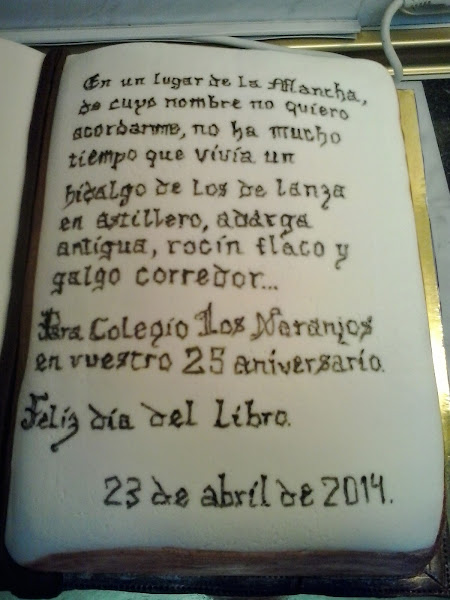 En un lugar de la Mancha,
de cuyo nombre no quiero
acordarme, no ha mucho
tiempo que vivía un
hidalgo de los de lanza
en astillero, adarga
antigua, rocín flaco y
galgo corredor...
Para Colegio Los Naranjos
en vuestro 25 aniversario.
Feliz día del libro.
23 de abril de 2014.